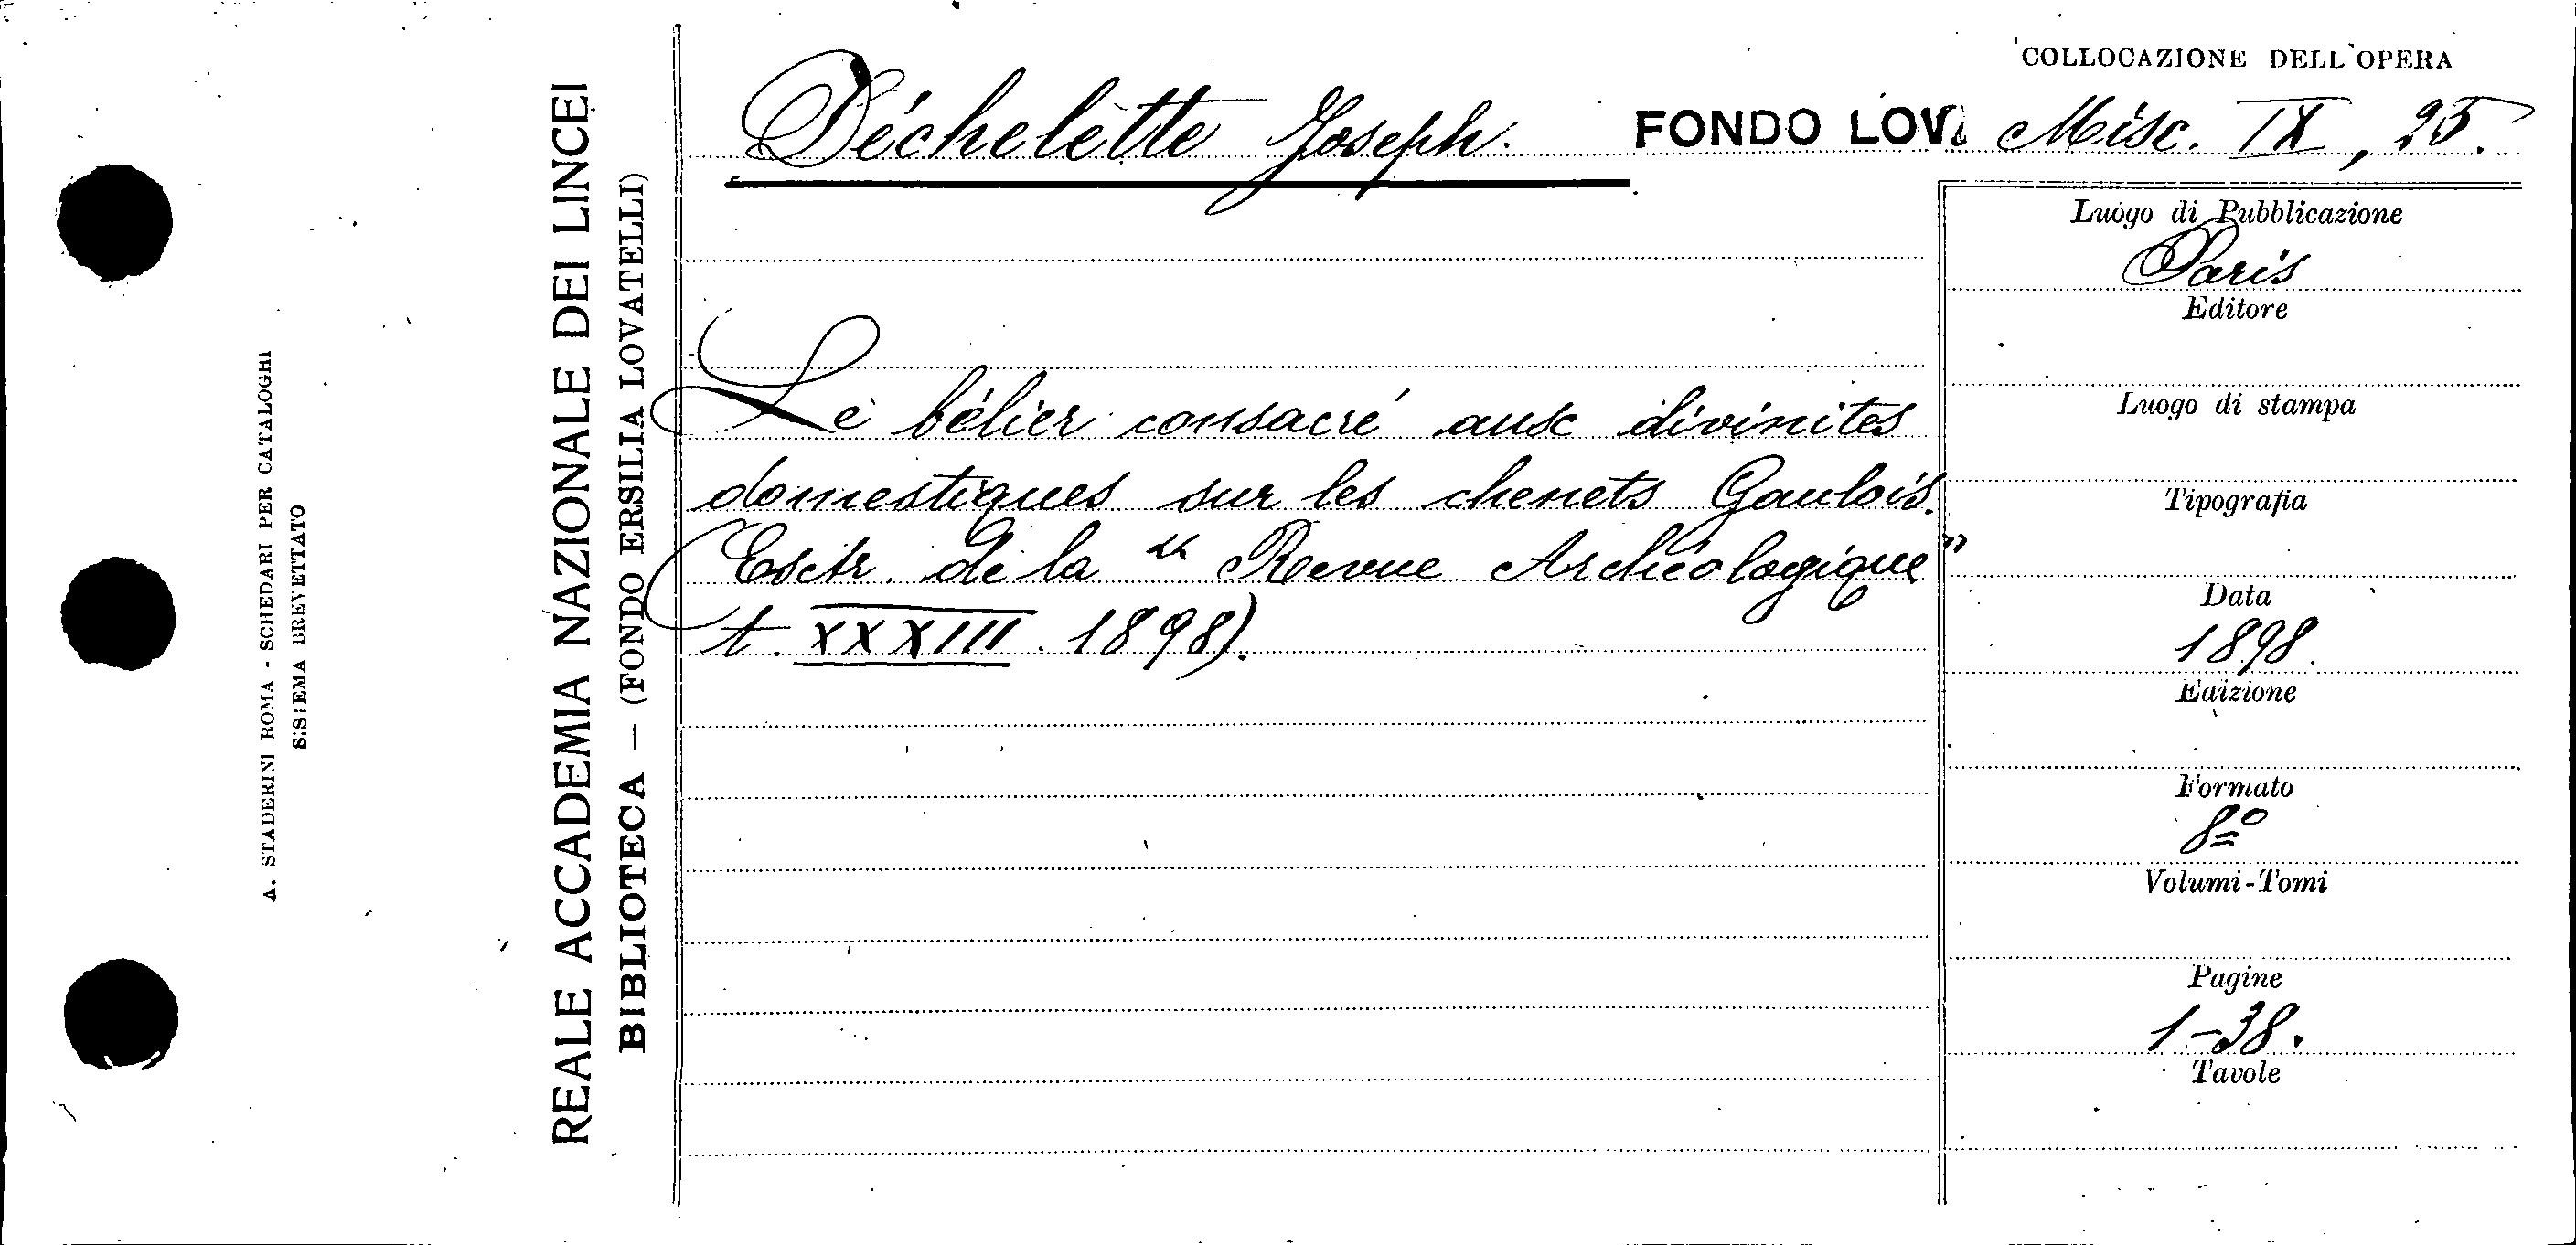 A. STADERINI ROMA - SCHEDARI PER CATALOGHI
SISTEMA BREVETTATO
REALE ACCADEMIA NAZIONALE DEI LINCEI
BIBLIOTECA — (FONDO ERSILIA LOVATELLI)
Déchelette Joseph.
Le bélier consacré aux divinités
domestiques sur les chenets Gaulois.
(Extr. de la "Revue Archéologique"
t. XXXIII. 1898).
COLLOCAZIONE DELL'OPERA
FONDO LOV. Misc. IX, 25.
Luogo di Pubblicazione
Paris
Editore
Luogo di stampa
Tipografia
Data
1898.
Edizione
Formato
8º
Volumi-Tomi
Pagine
1-38.
Tavole